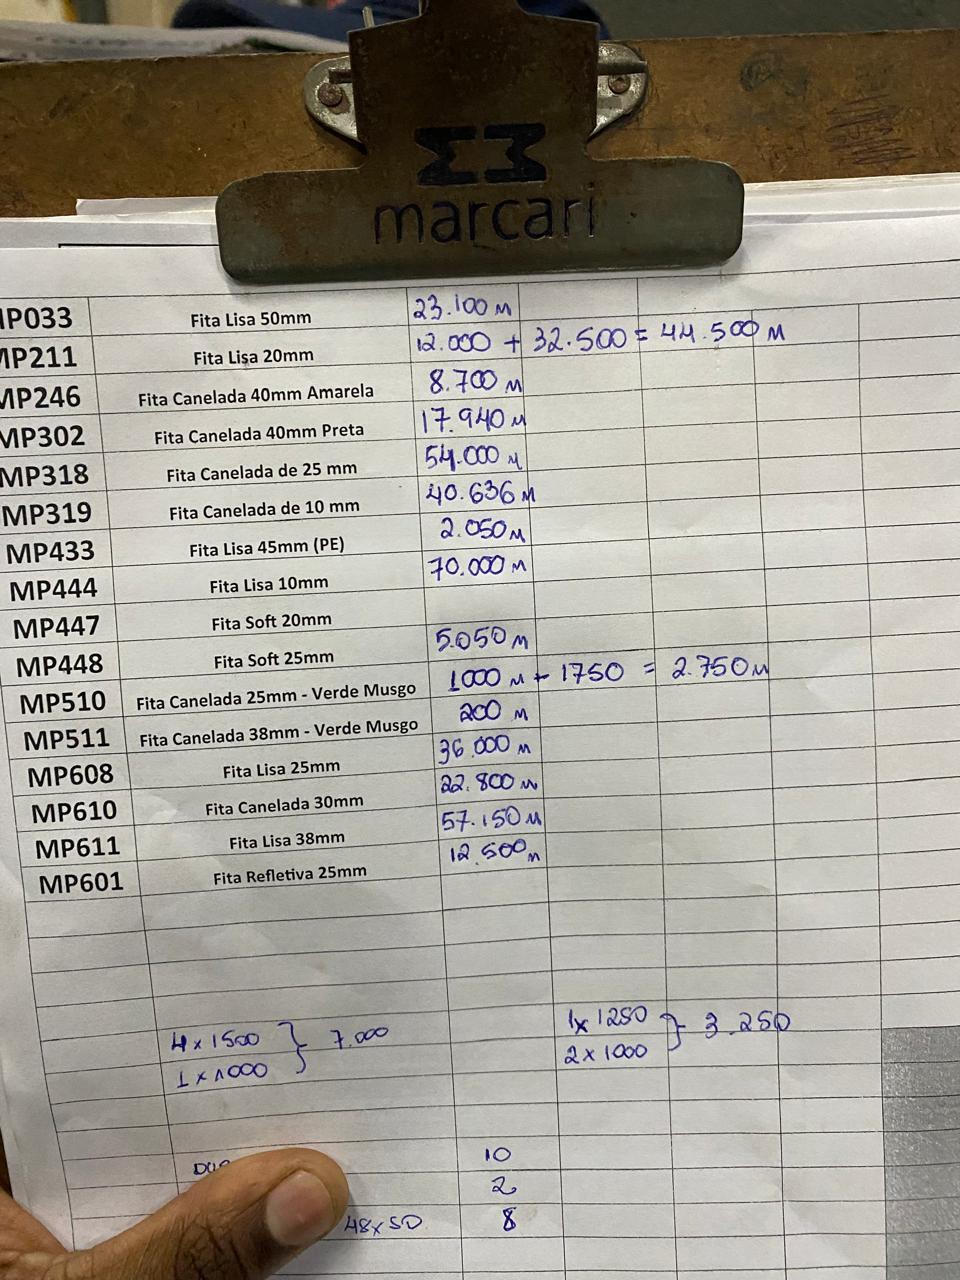 marcari
MP033 Fita Lisa 50mm 23.100 M
MP211 Fita Lisa 20mm 12.000 + 32.500 = 44.500 M
MP246 Fita Canelada 40mm Amarela 8.700 M
MP302 Fita Canelada 40mm Preta 17.940 M
MP318 Fita Canelada de 25 mm 54.000 M
MP319 Fita Canelada de 10 mm 40.636 M
MP433 Fita Lisa 45mm (PE) 2.050 M
MP444 Fita Lisa 10mm 70.000 M
MP447 Fita Soft 20mm
MP448 Fita Soft 25mm 5.050 M
MP510 Fita Canelada 25mm - Verde Musgo 1000 M + 1750 = 2.750 M
MP511 Fita Canelada 38mm - Verde Musgo 200 M
MP608 Fita Lisa 25mm 36.000 M
MP610 Fita Canelada 30mm 22.800 M
MP611 Fita Lisa 38mm 57.150 M
MP601 Fita Refletiva 25mm 12.500 M
4 x 1500 } 7.000 1 x 1250 } 3.250
1 x 1000 2 x 1000
10
2
48x50 8